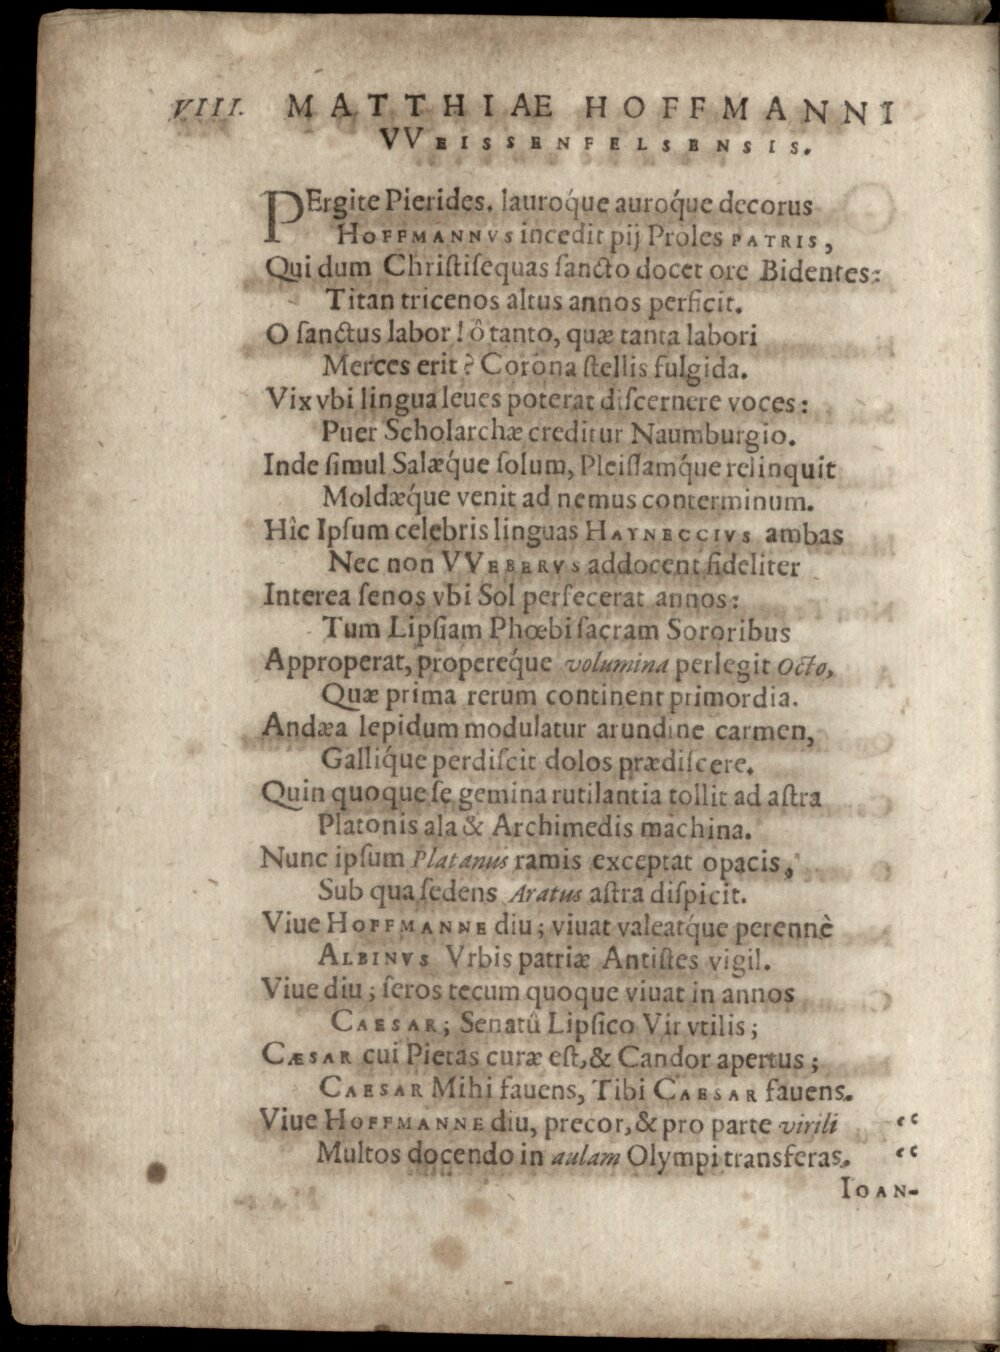 VIII. MATTHIAE HOFFMANNI
VVEISSENFELSENSIS.
PErgite Pierides. lauroq́ue auroq́ue decorus
HOFFMANNVS incedit pij Proles PATRIS,
Qui dum Christisequas sancto docet ore Bidentes:
Titan tricenos altus annos perficit.
O sanctus labor! ô tanto, quæ tanta labori
Merces erit? Coróna stellis fulgida.
Vix vbi lingua leues poterat discernere voces:
Puer Scholarchæ creditur Naumburgio.
Inde simul Salæq́ue solum, Pleissamq́ue relinquit
Moldæq́ue venit ad nemus conterminum.
Hîc Ipsum celebris linguas HAYNECCIVS ambas
Nec non VVEBERVS addocent fideliter
Interea senos vbi Sol perfecerat annos:
Tum Lipsiam Phœbi sacram Sororibus
Approperat, propereq́ue volumina perlegit Octo,
Quæ prima rerum continent primordia.
Andæa lepidum modulatur arundine carmen,
Galliq́ue perdiscit dolos prædiscere.
Quin quoque se gemina rutilantia tollit ad astra
Platonis ala & Archimedis machina.
Nunc ipsum Platanus ramis exceptat opacis,
Sub qua sedens Aratus astra dispicit.
Viue HOFFMANNE diu; viuat valeatq́ue perennè
ALBINVS Vrbis patriæ Antistes vigil.
Viue diu; seros tecum quoque viuat in annos
CAESAR; Senatû Lipsico Vir vtilis;
CÆSAR cui Pietas curæ est, & Candor apertus;
CAESAR Mihi fauens, Tibi CAESAR fauens.
Viue HOFFMANNE diu, precor, & pro parte virili “
Multos docendo in aulam Olympi transferas. “
IOAN-